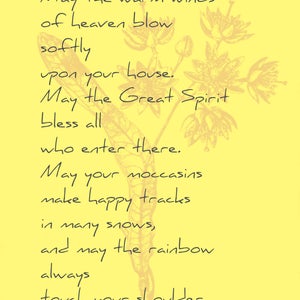 May the warm winds
of heaven blow
softly
upon your house.
May the Great Spirit
bless all
who enter there.
May your moccasins
make happy tracks
in many snows,
and may the rainbow
always
touch your shoulder